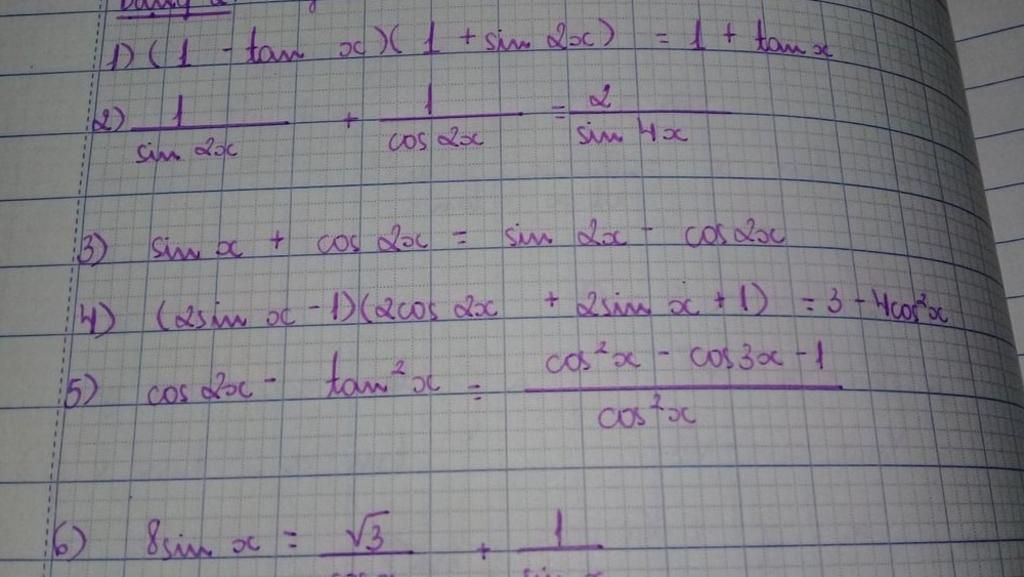 1) (1 - tan x)(1 + sin 2x) = 1 + tan x
2) 1/sin 2x + 1/cos 2x = 2/sin 4x
3) sin x + cos 2x = sin 2x - cos 2x
4) (2sin x - 1)(2cos 2x + 2sin x + 1) = 3 - 4cos²x
5) cos 2x - tan²x = (cos²x - cos3x - 1)/cos²x
6) 8sin x = √3/ + 1/